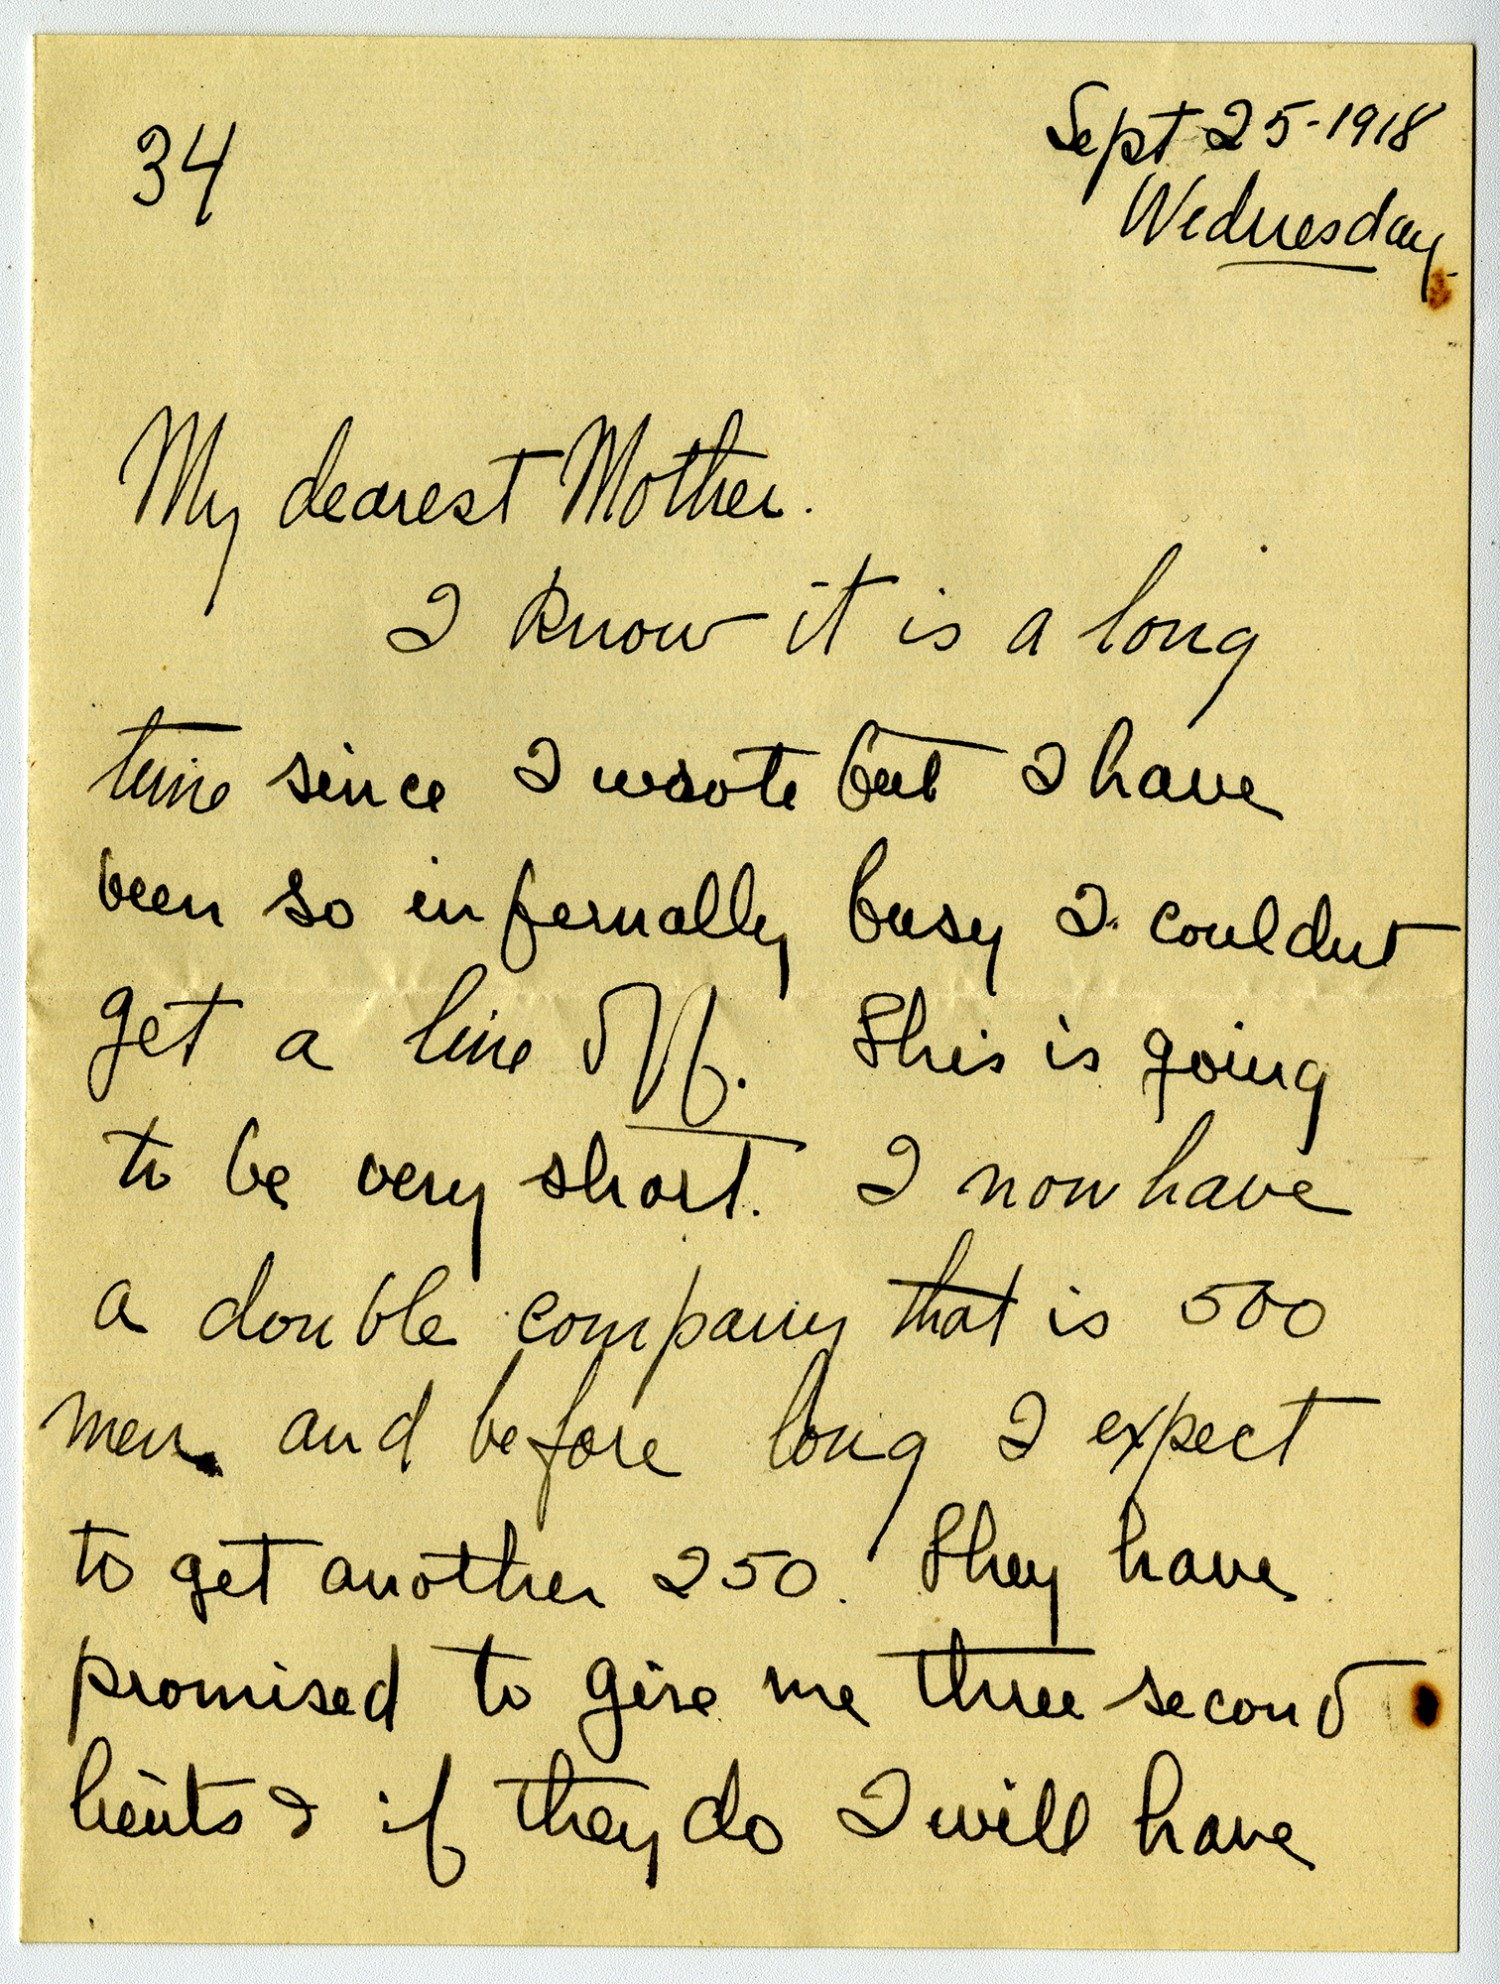 34
Sept 25-1918
Wednesday
My dearest Mother.
I know it is a long
time since I wrote but I have
been so infernally busy I couldnt
get a line off. This is going
to be very short. I now have
a double company that is 500
men and before long I expect
to get another 250. They have
promised to give me three second
lieuts & if they do I will have